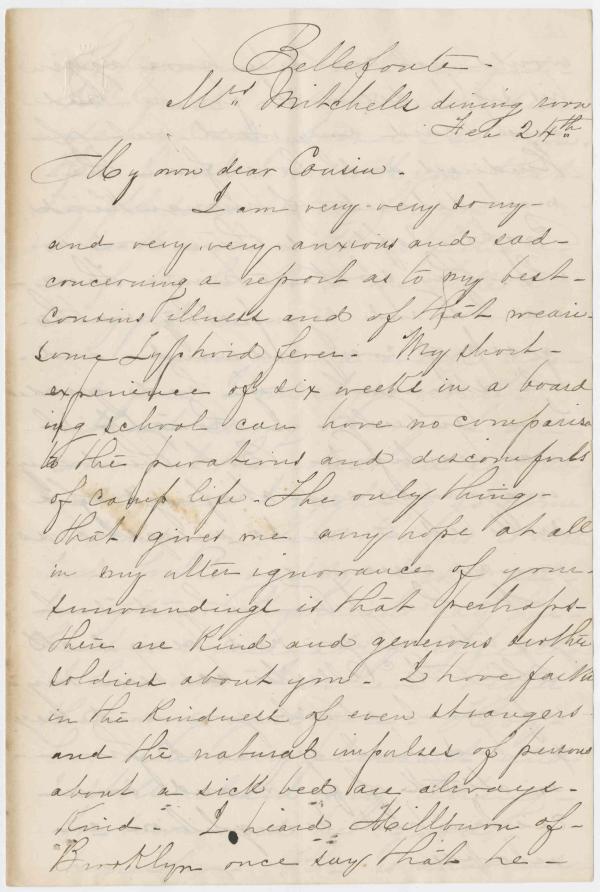 Bellefonte -
Mrs Mitchells dining room
Feb 24th
My own dear Cousin.
I am very very sorry -
and very, very anxious and sad -
concerning a report as to my best -
cousins illness and of that weari-
some Typhoid fever - My short -
experience of six weeks in a board
ing school can have no comparison
to the privations and discomforts
of camp life - The only thing -
that gives me any hope at all
in my utter ignorance of your -
surroundings is that perhaps -
there are kind and generous
soldiers about you - I have faith
in the kindness of even strangers -
and the natural impulses of persons
about a sick bed are always -
kind - I heard Millburn of -
Brooklyn once say that he -